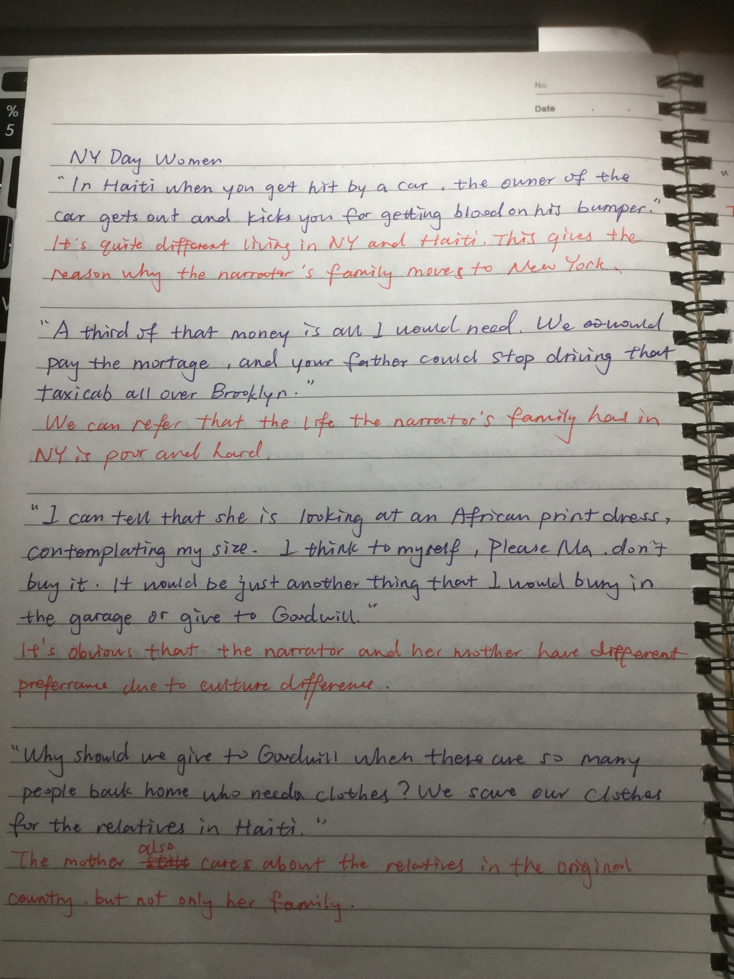 No.
Date . .
%
5
NY Day Women
"In Haiti when you get hit by a car, the owner of the
car gets out and kicks you for getting blood on his bumper."
It's quite different living in NY and Haiti. This gives the
reason why the narrator's family moves to New York.
"A third of that money is all I would need. We would
pay the mortage, and your father could stop driving that
taxicab all over Brooklyn."
We can refer that the life the narrator's family has in
NY is poor and hard.
"I can tell that she is looking at an African print dress,
contemplating my size. I think to myself, Please Ma, don't
buy it. It would be just another thing that I would bury in
the garage or give to Goodwill."
It's obvious that the narrator and her mother have different
preferrance due to culture difference.
"Why should we give to Goodwill when there are so many
people back home who need clothes? We save our clothes
for the relatives in Haiti."
The mother also cares about the relatives in the original
country, but not only her family.